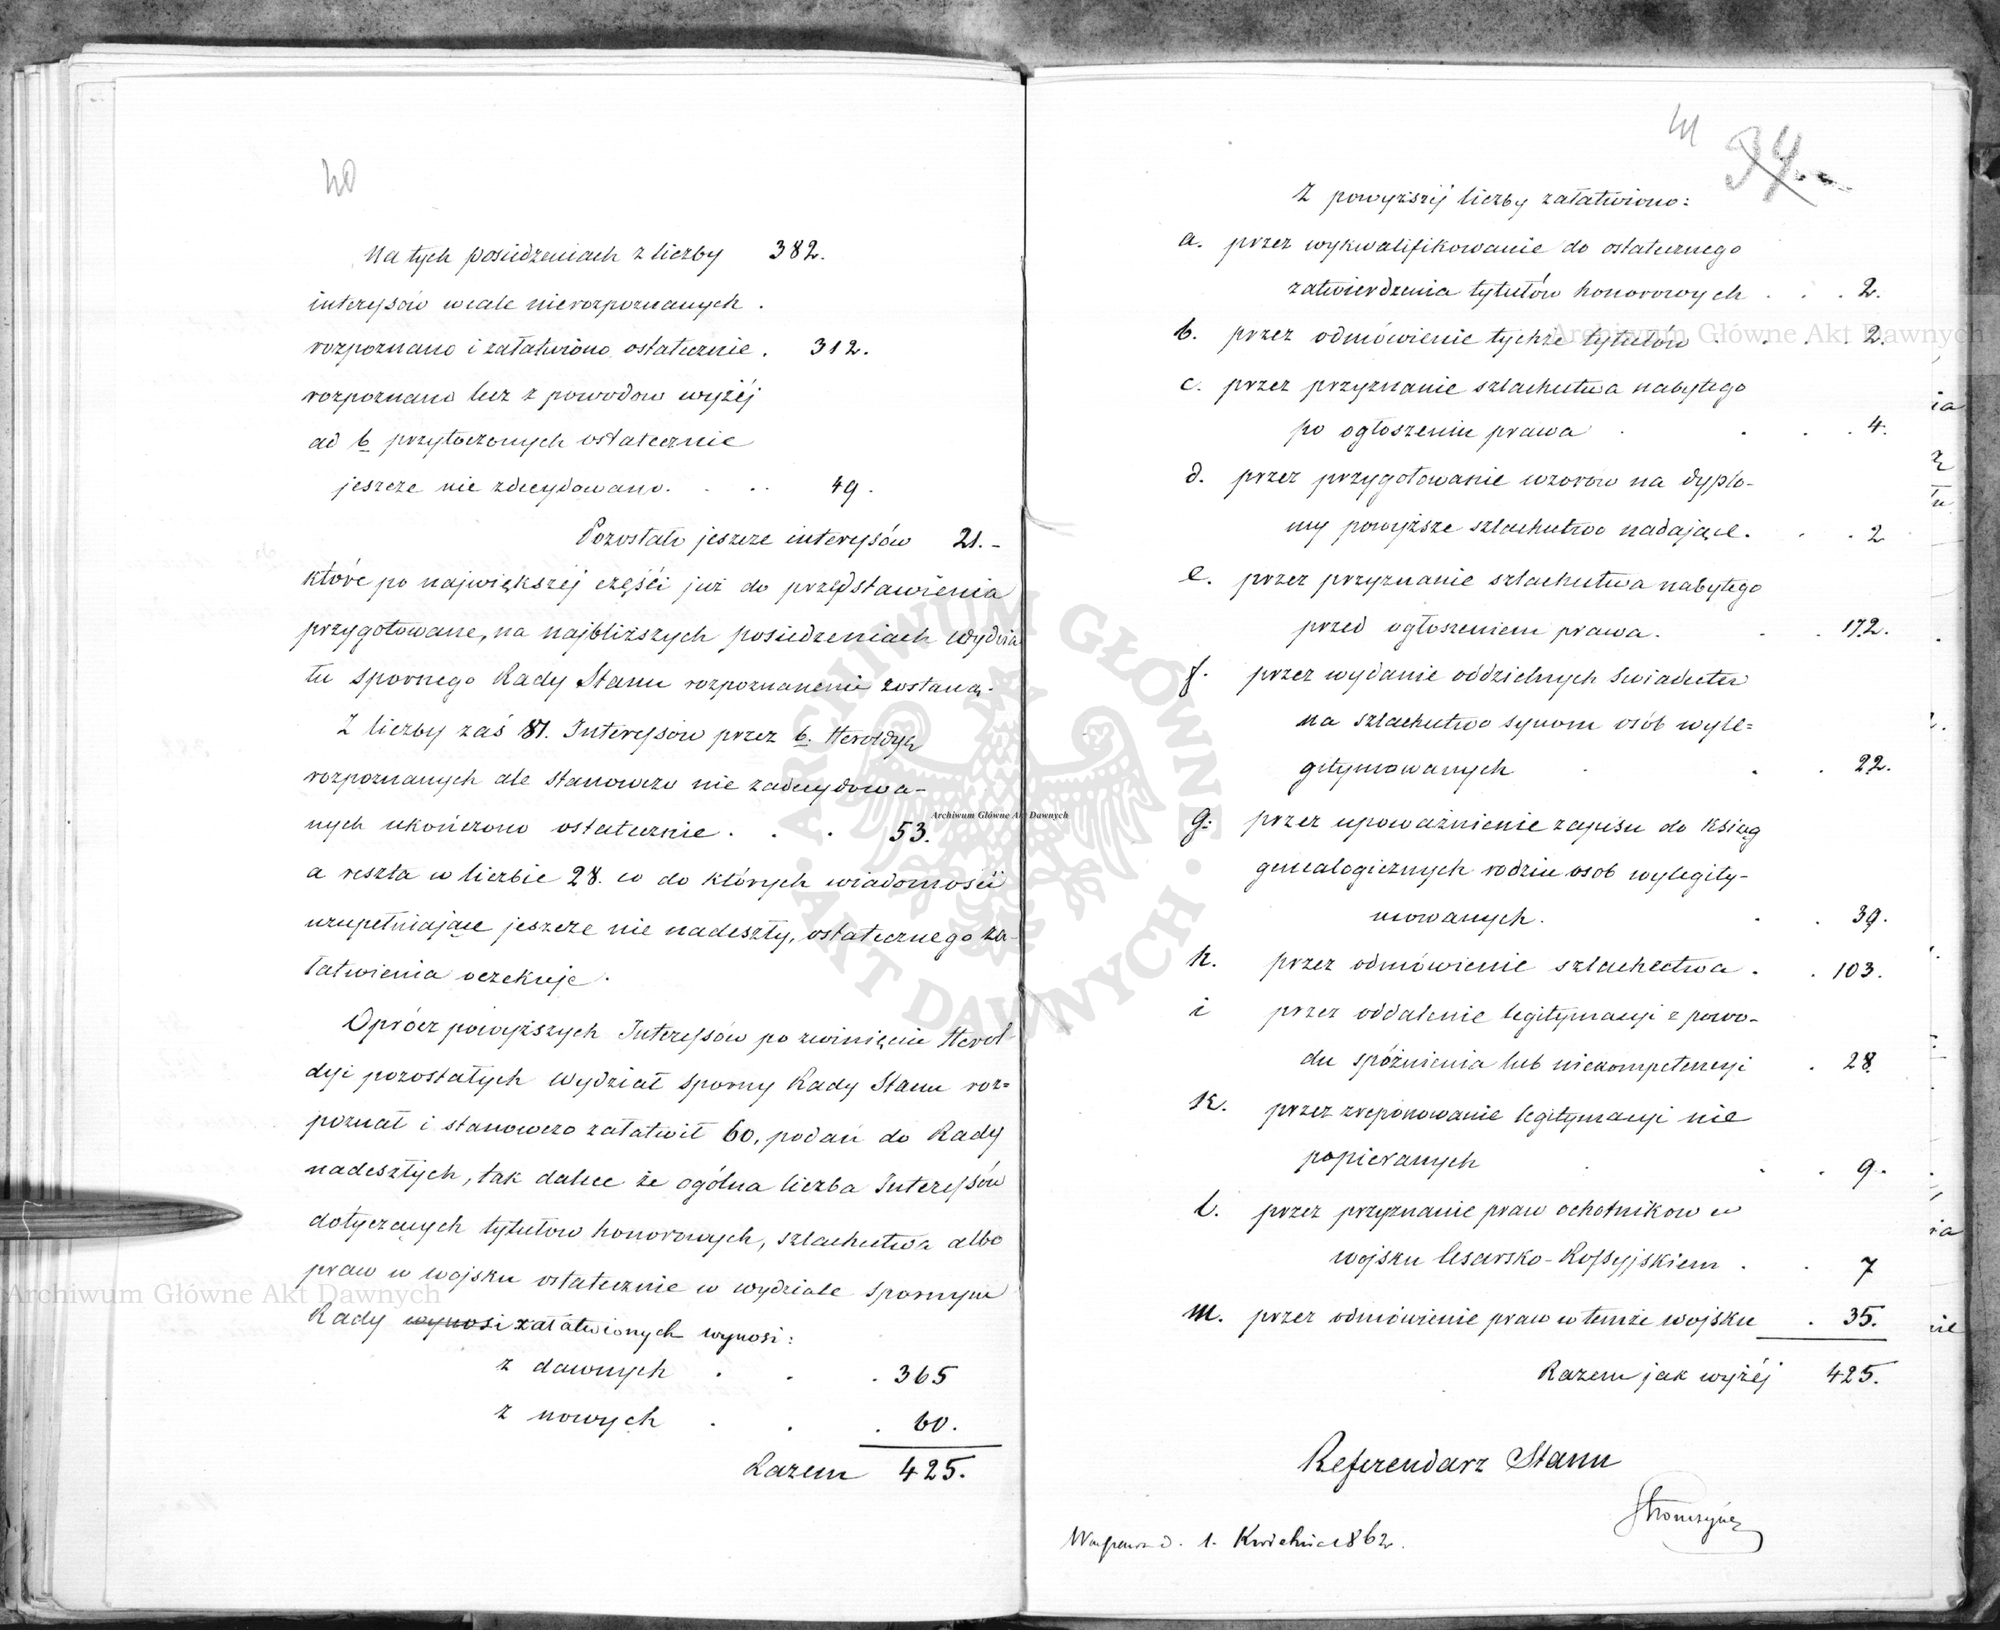 40
Na tych posiedzeniach z liczby 382.
interessów wcale nierozpoznanych.
rozpoznano i załatwiono ostatecznie. 312.
rozpoznano lecz z powodów wyżéj
ad b przytoczonych ostatecznie
jeszcze nie zdecydowano. . . . 49.
Pozostało jeszcze interesów 21.-
które po największéj części już do przedstawienia
przygotowane, na najbliższych posiedzeniach Wydzia
łu spornego Rady Stanu rozpoznanemi zostaną.
Z liczby zaś 81. Interessów przez b. Heroldyą
rozpoznanych ale stanowczo nie zadecydowa-
nych ukończono ostatecznie . . . 53.
a reszta w liczbie 28. co do których wiadomości
uzupełniające jeszcze nie nadeszły, ostatecznego za-
łatwienia oczekuje.
Oprócz powyższych Interessów po zwinięciu Herol
dyi pozostałych Wydział sporny Rady Stanu roz=
poznał i stanowczo załatwił 60, podań do Rady
nadeszłych, tak dalece że ogólna liczba Interessów
dotyczących tytułów honorowych, szlachectwa albo
praw w wojsku ostatecznie w wydziale spornym
Rady wynosi załatwionych wynosi:
z dawnych . . . 365
z nowych . . . 60.
Razem 425.
41 94
Z powyższéj liczby załatwiono:
a. przez wykwalifikowanie do ostatecznego
zatwierdzenia tytułów honorowych . . . 2.
b. przez odmówienie tychże tytułów . . . 2.
c. przez przyznanie szlachectwa nabytego
po ogłoszeniu prawa . . . . 4.
d. przez przygotowanie wzorów na dyplo-
my powyższe szlachectwo nadające. . . 2
e. przez przyznanie szlachectwa nabytego
przed ogłoszeniem prawa. . . 172.
f. przez wydanie oddzielnych świadectw
na szlachectwo synom osób wyle=
gitymowanych . . . 22.
g. przez upoważnienie zapisu do ksiąg
genealogicznych rodzin osób wylegity-
mowanych. . . 39.
h. przez odmówienie szlachectwa . . 103.
i przez oddalenie legitymacyi z powo-
du spóźnienia lub niekompetencyi . 28.
k. przez zreponowanie legitymacyi nie
popieranych . . . 9.
l. przez przyznanie praw ochotników w
wojsku Cesarsko-Rossyjskiem . . 7
m. przez odmówienie praw w temże wojsku . 35.
Razem jak wyżéj 425.
Referendarz Stanu
Stronczyński
Warszawa d. 1. Kwietnia 1862.
Archiwum Główne Akt Dawnych
Archiwum Główne Akt Dawnych
Archiwum Główne Akt Dawnych
ARCHIWUM GŁÓWNE · AKT DAWNYCH ·